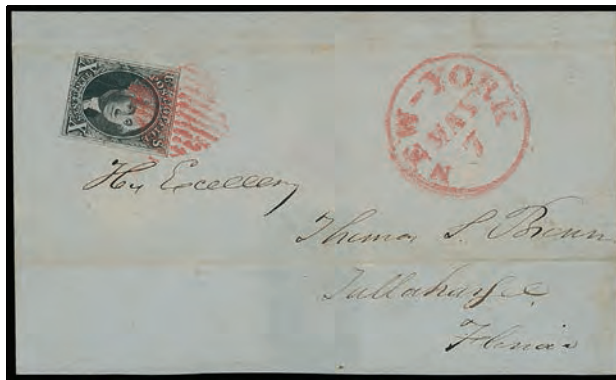 X X
NEW-YORK
MAY
7
His Excellency
Thomas S. Brown
Tallahassee
Florida